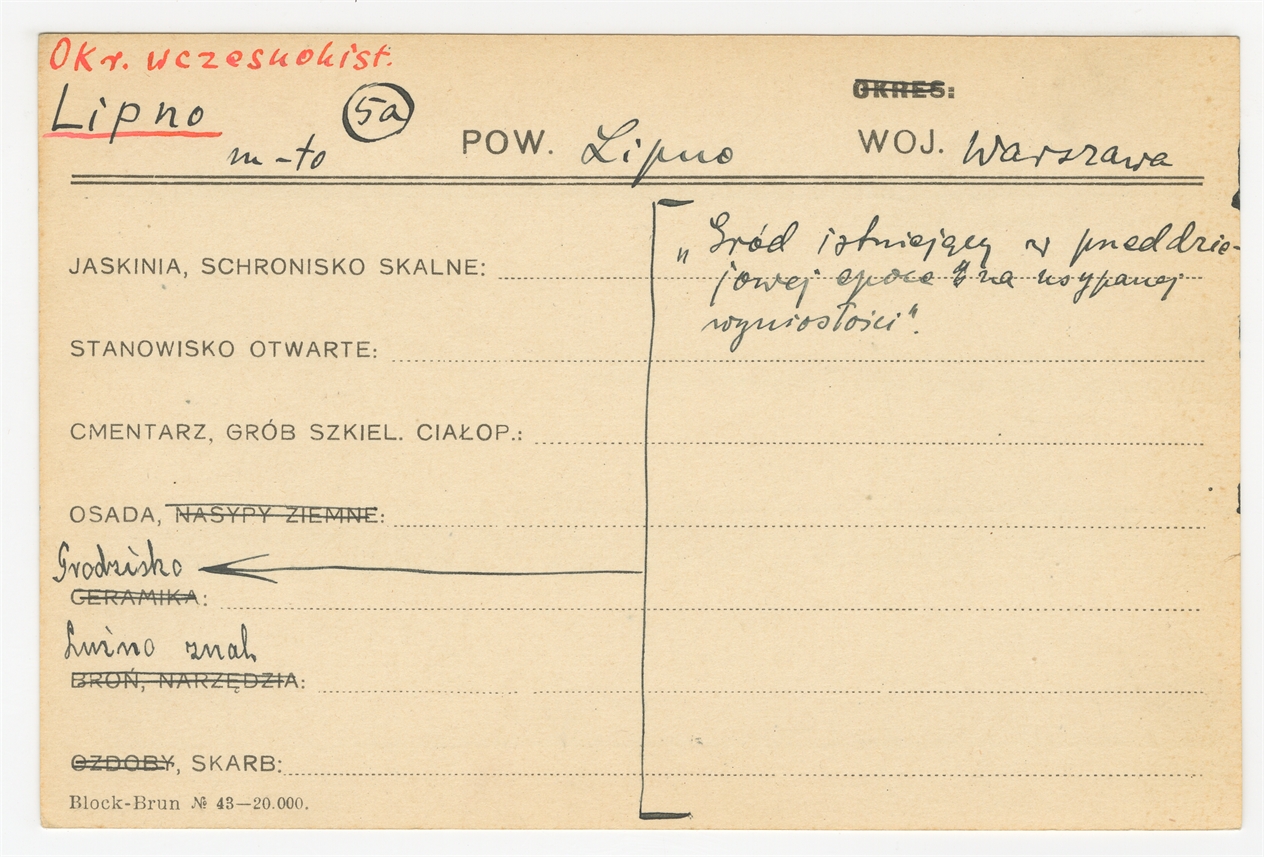 Okr. wczesnohist.
OKRES:
Lipno 5a
m-to POW. Lipno WOJ. Warszawa
„Gród istniejący w przeddzie-
JASKINIA, SCHRONISKO SKALNE:
jowej epoce na usypanej
wyniosłości".
STANOWISKO OTWARTE:
CMENTARZ, GRÓB SZKIEL. CIAŁOP.:
OSADA, NASYPY ZIEMNE:
Grodzisko
CERAMIKA:
Luźno znal.
BROŃ, NARZĘDZIA:
OZDOBY, SKARB:
Block-Brun № 43—20.000.